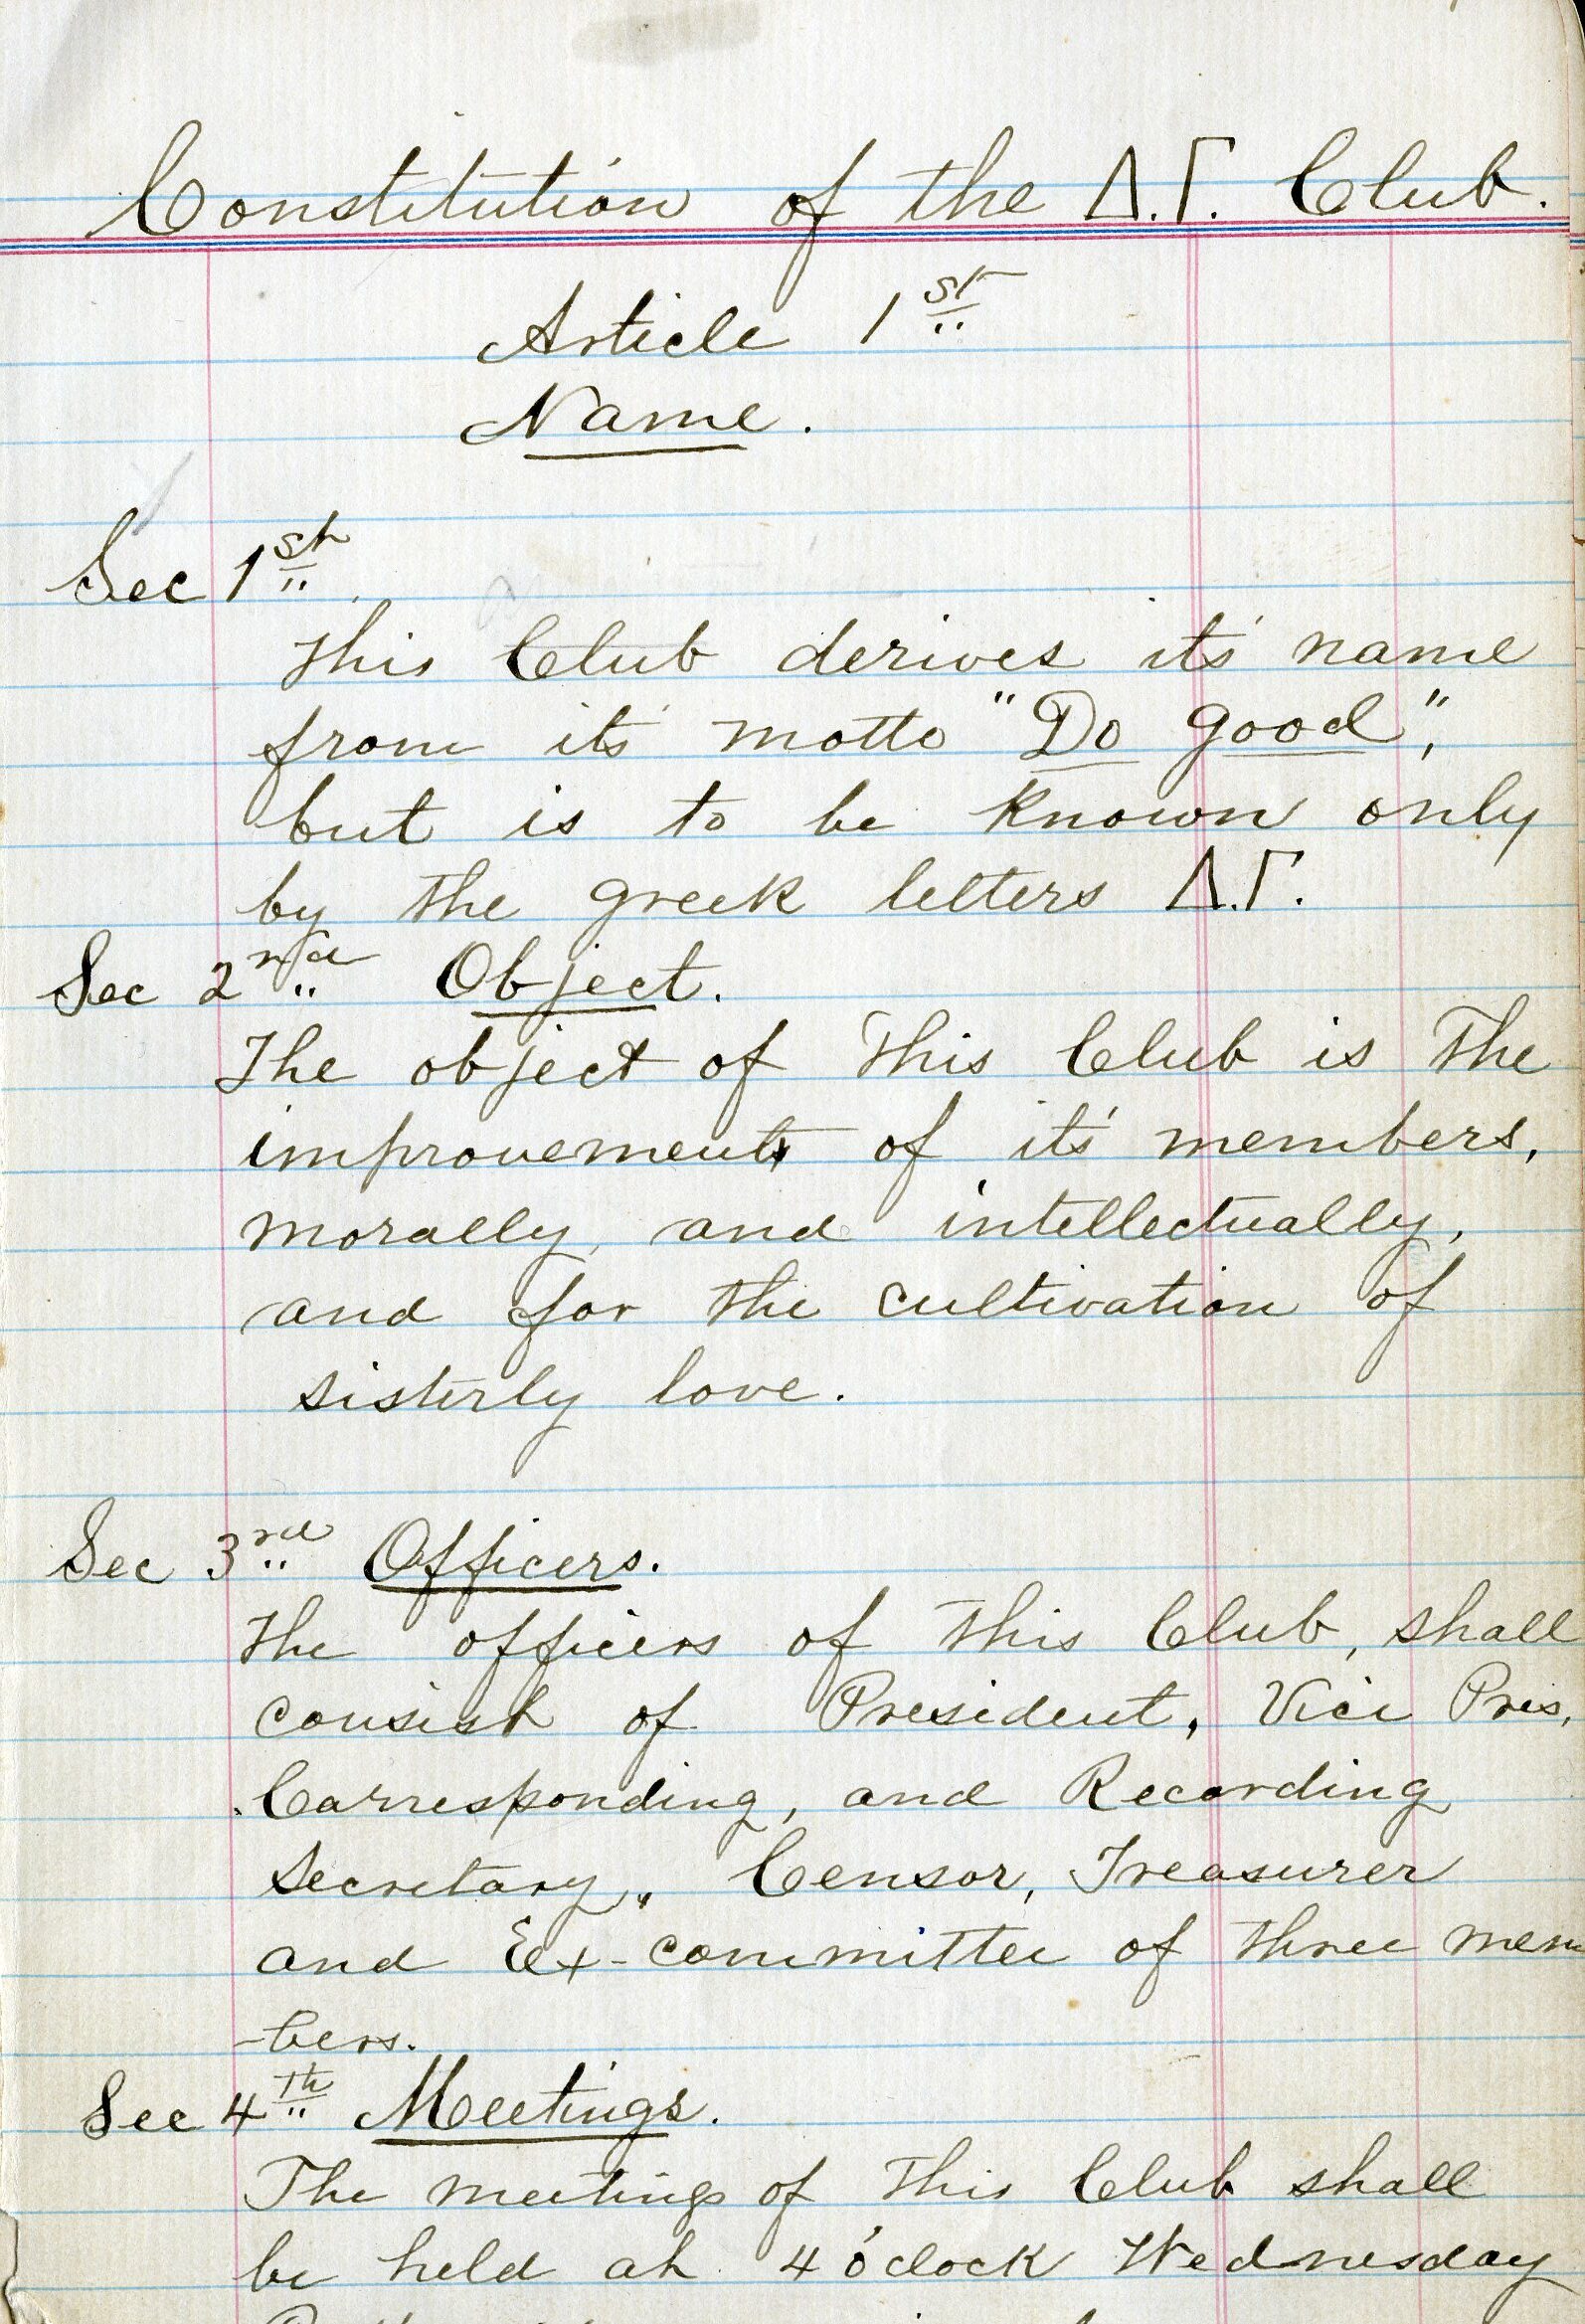 Constitution of the Δ.Γ. Club.
Article 1st
Name.
Sec 1st.
This Club derives it's name
from it's motto "Do good",
but is to be known only
by the greek letters Δ.Γ.
Sec 2nd Object.
The object of this Club is the
improvement of it's members,
morally, and intellectually,
and for the cultivation of
sisterly love.
Sec 3rd Officers.
The officers of this Club, shall
consist of President, Vice Pres,
Corresponding, and Recording
Secretary, Censor, Treasurer
and Ex-committee of three mem
-bers.
Sec 4th Meetings.
The meetings of this Club shall
be held at 4 o'clock Wednesday